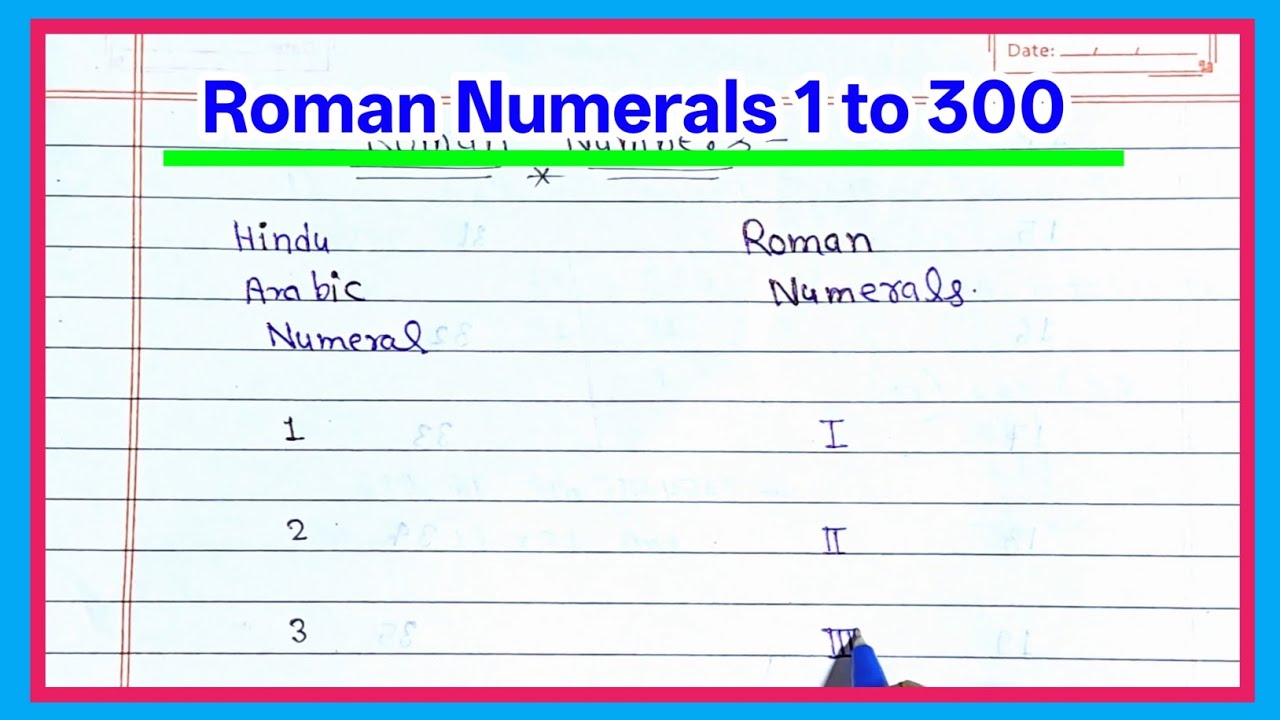 Date:
Roman Numerals 1 to 300
Hindu Roman
Arabic Numerals.
Numeral
1 I
2 II
3 III